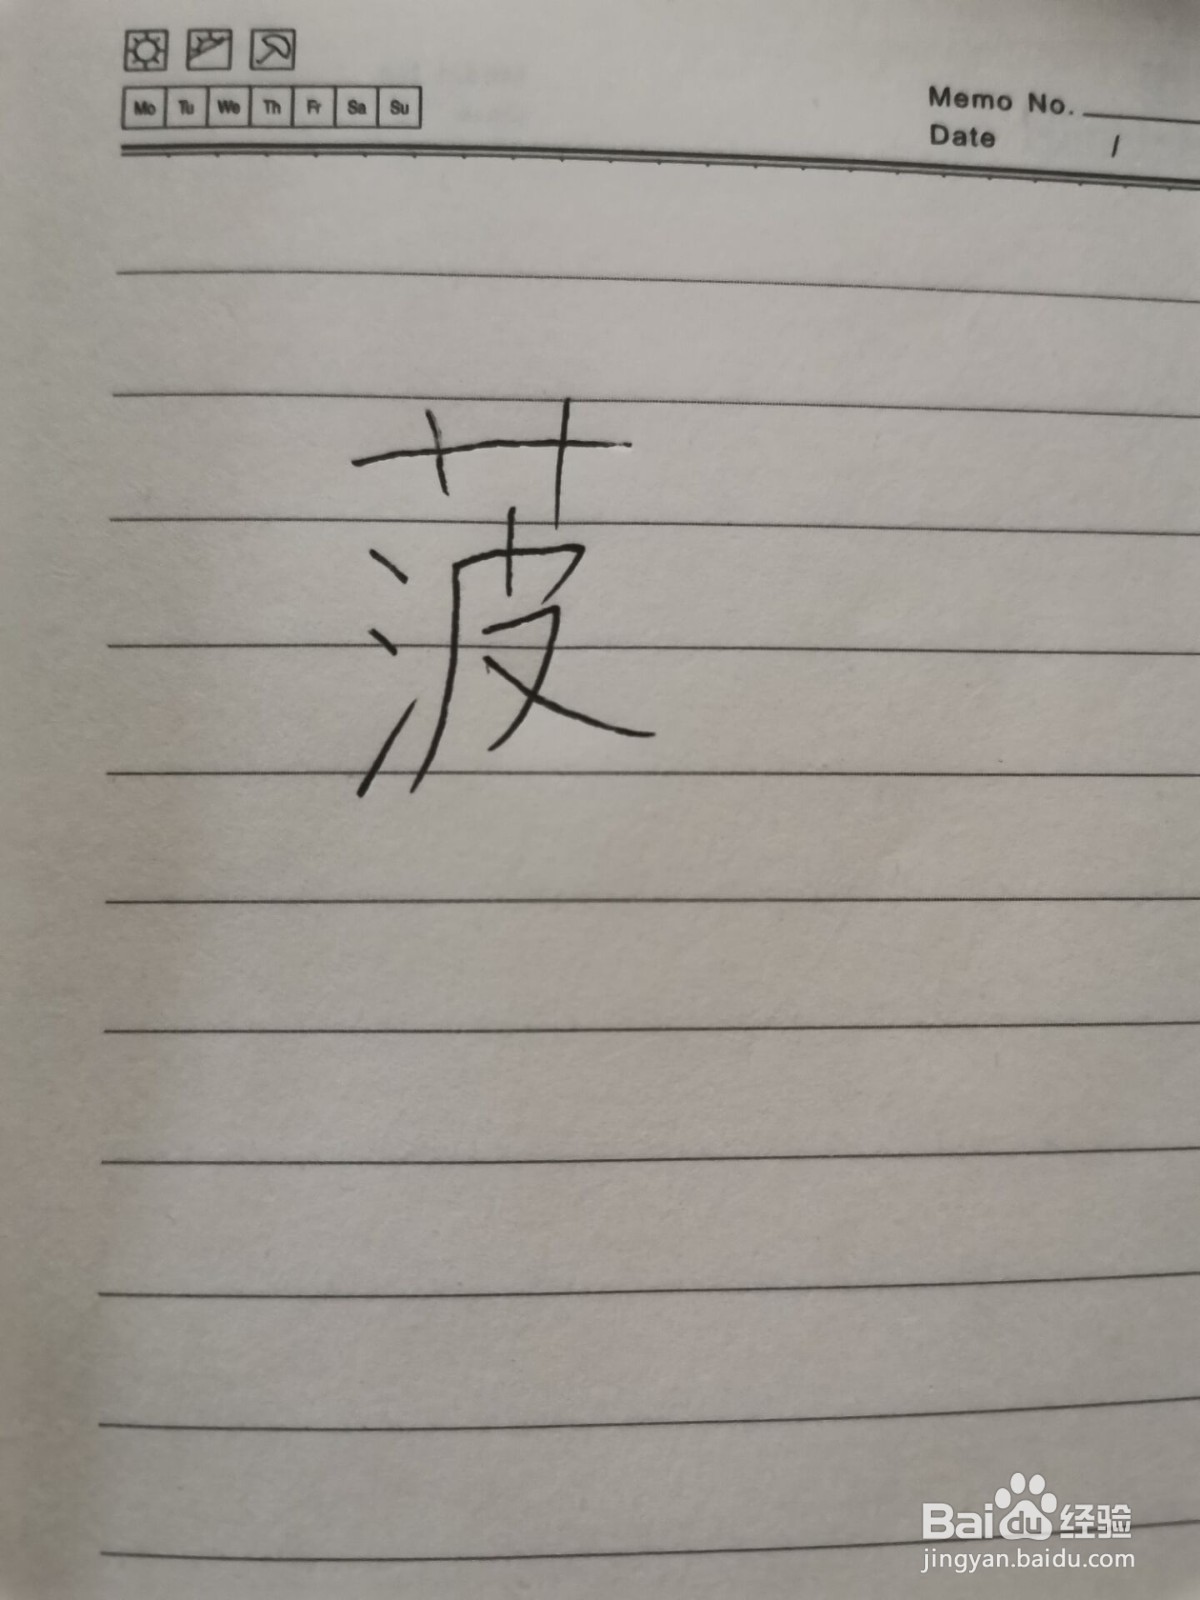 Mo Tu We Th Fr Sa Su
Memo No.
Date /
菠
Baidu经验
jingyan.baidu.com